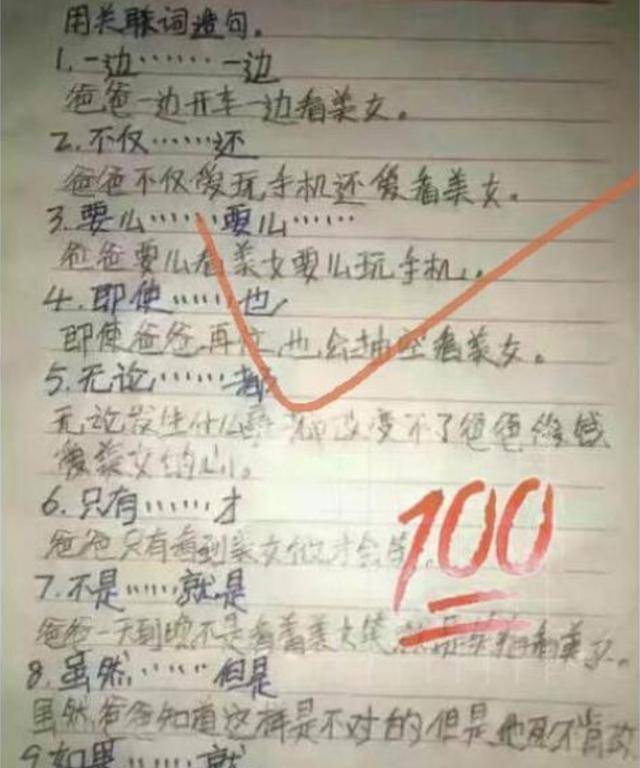 用关联词造句。
1.一边……一边
爸爸一边开车一边看美女。
2.不仅……还
爸爸不仅爱玩手机还爱看美女。
3.要么……要么……
爸爸要么看美女要么玩手机。
4.即使……也
即使爸爸再忙,也会抽空看美女。
5.无论……都
无论发生什么事都改变不了爸爸
爱美女的心。
6.只有……才
爸爸只有看到美女他才会笑
100
7.不是……就是
爸爸一天到晚不是看着美女笑就是看美女。
8.虽然……但是
虽然爸爸知道这样是不对的但是他死不肯改
9.如果……就